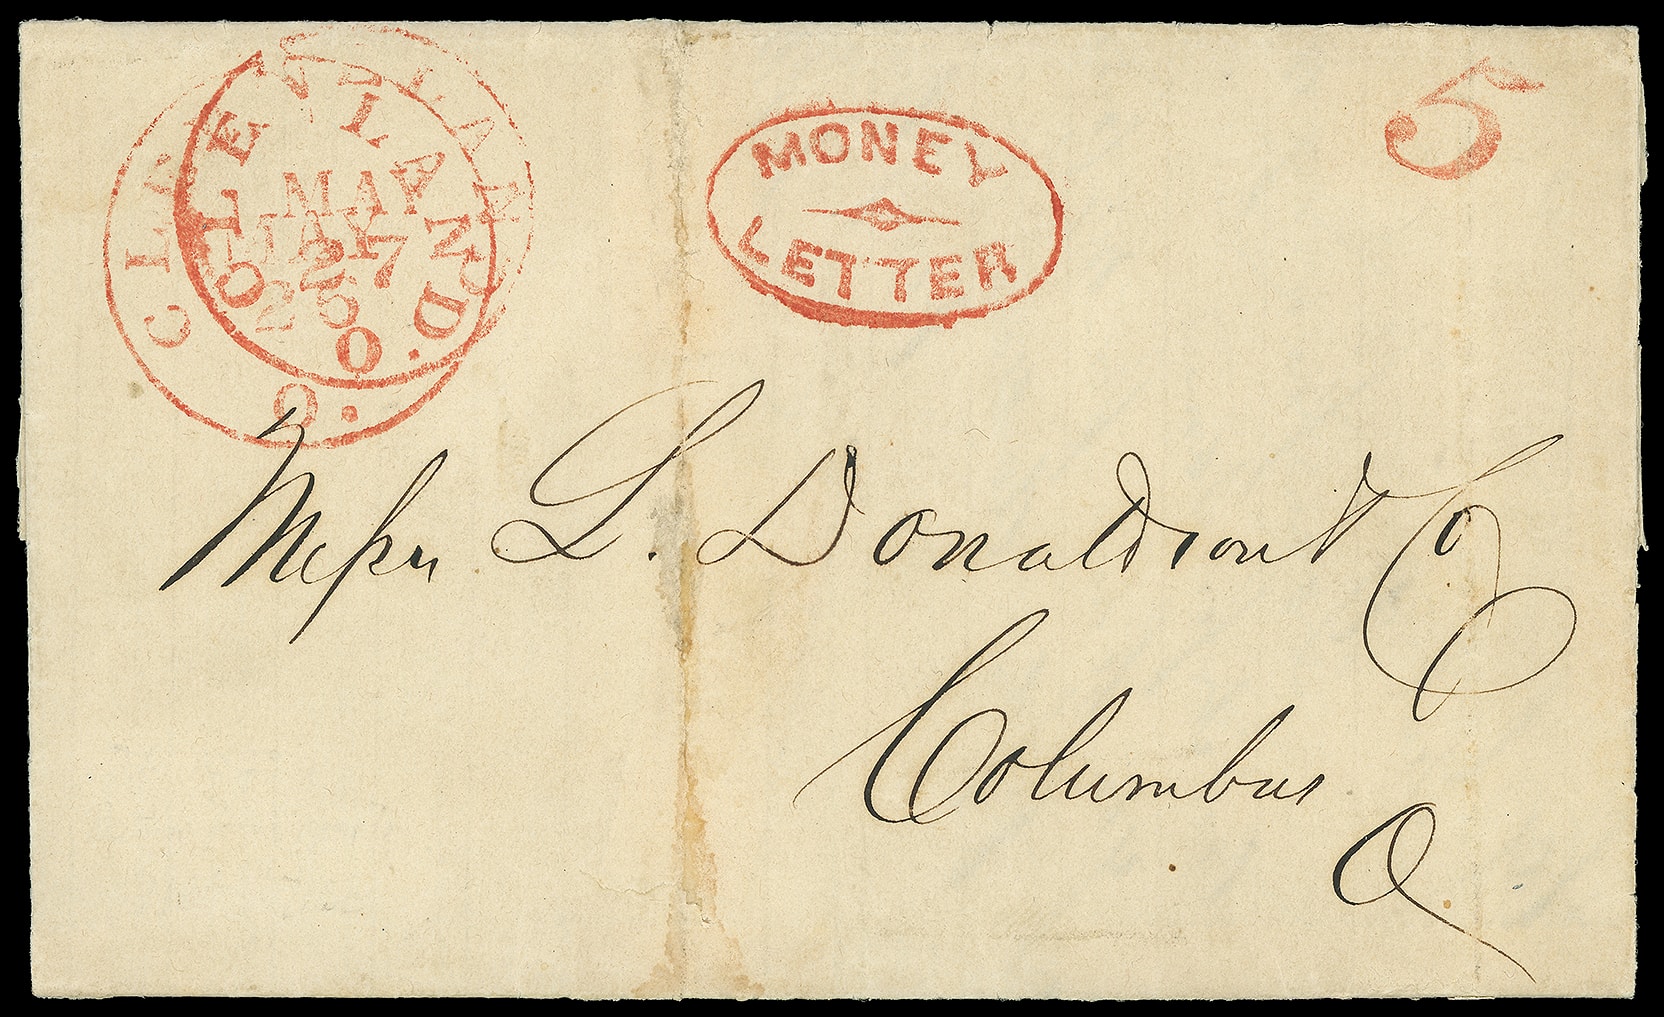 CLEVELAND. O.
MAY
25
CLEVELAND. O.
MAY
27
MONEY
LETTER
5
Messrs L. Donaldson & Co
Columbus
O